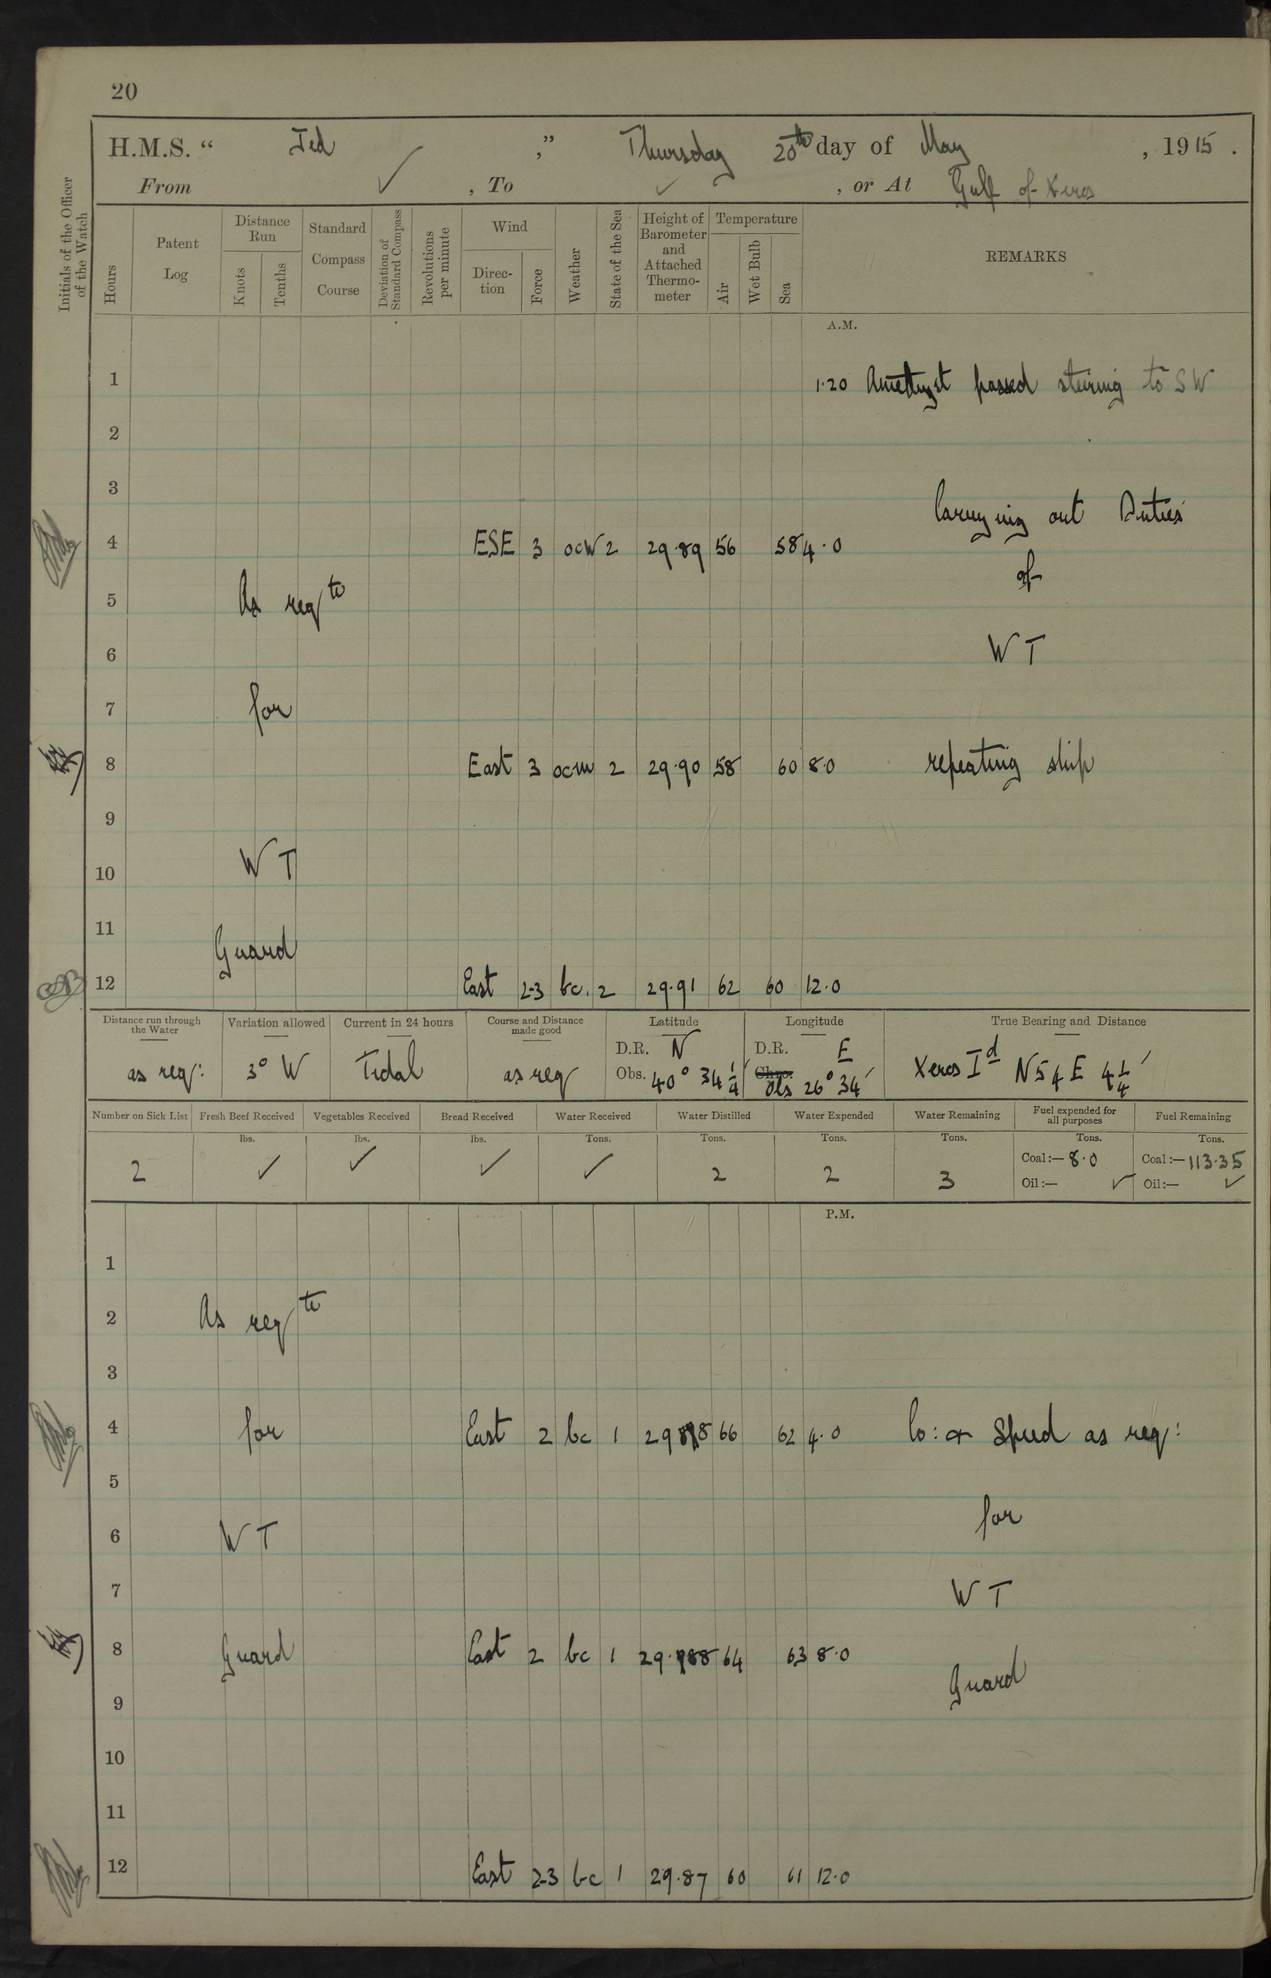 20
H.M.S. “ Jed ,” Thursday 20th day of May , 1915 .
From ✓ , To ✓ , or At Gulf of Xeros
Initials of the Officer of the Watch
Hours
Patent Log
Distance Run
Knots
Tenths
Standard Compass Course
Deviation of Standard Compass
Revolutions per minute
Wind
Direction
Force
Weather
State of the Sea
Height of Barometer and Attached Thermometer
Temperature
Air
Wet Bulb
Sea
REMARKS
A.M.
1 1.20 Amethyst passed steering to SW
2
3 Carrying out Duties
4 ESE 3 ocw 2 29.89 56 58 4.0
of
5 As reqte
6 W T
7 for
8 East 3 ocm 2 29.90 58 60 8.0 repeating ship
9
10 W T
11 Guard
12 East 2-3 bc. 2 29.91 62 60 12.0
Distance run through the Water
Variation allowed
Current in 24 hours
Course and Distance made good
Latitude
Longitude
True Bearing and Distance
as req: 3° W Tidal as req
D.R. N
Obs. 40° 34 1/4′
D.R. E
Chro. Obs 26° 34′
Xeros Id N54E 4 1/4′
Number on Sick List
Fresh Beef Received
Vegetables Received
Bread Received
Water Received
Water Distilled
Water Expended
Water Remaining
Fuel expended for all purposes
Fuel Remaining
lbs. lbs. lbs. Tons. Tons. Tons. Tons. Tons. Tons.
2 ✓ ✓ ✓ ✓ 2 2 3
Coal:— 8.0 Coal:— 113.35
Oil:— ✓ Oil:— ✓
P.M.
1
2 As reqte
3
4 for East 2 bc 1 66 62 4.0 Co: & Speed as req:
5
for
6 W T
7 W T
8 Guard East 2 bc 1 64 63 8.0
Guard
9
10
11
12 East 2-3 bc 1 29.87 60 61 12.0